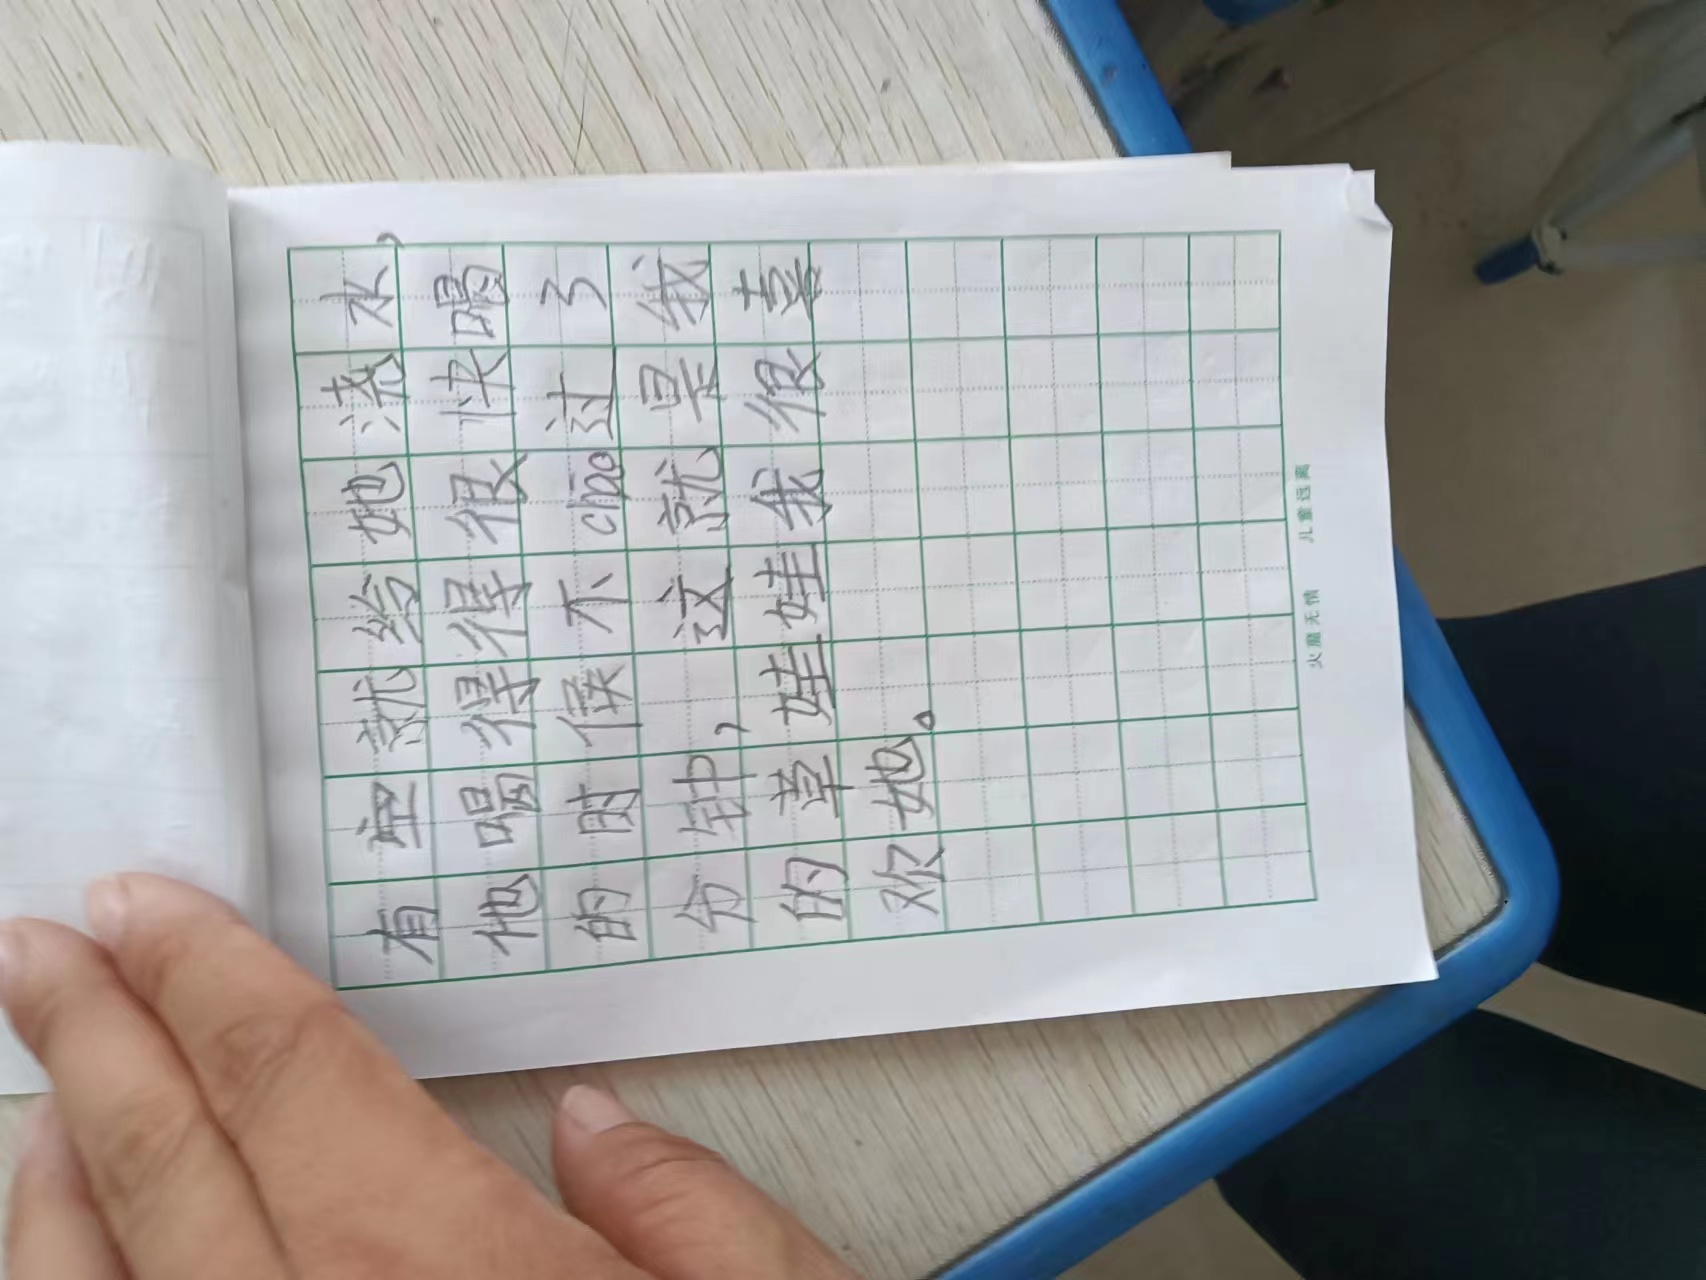 有空就给她浇水,
他喝得得很快喝
的时候不chāo过3
分钟,这就是我
的草娃娃我很喜
欢她。
火魔无情 儿童远离